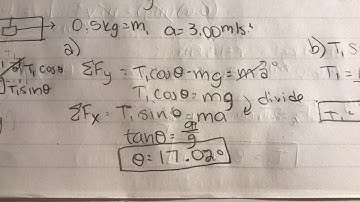 0.5kg=m, a=3.00m/s²
a)
T₁cosθ
T₁sinθ
ΣFy = T₁cosθ-mg=ma°
T₁cosθ=mg
ΣFx = T₁sinθ=ma
divide
tanθ=a/g
θ=17.02°
b) T₁S
T₁=